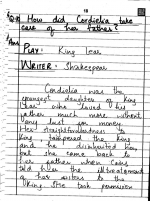 18
Q. How did Cordielia take
care of her father?
Ans
PLAY: King Lear
WRITER: Shakespear
Cordelia was the
youngest daughter of King
Lear who loved his
father much more without
any lust for money.
Her straightforwardness to
King tampered the king
and she disinherited King
but she came back to
her father when Caius
told her the illtreatment
of her sisters to the
King. She took permission